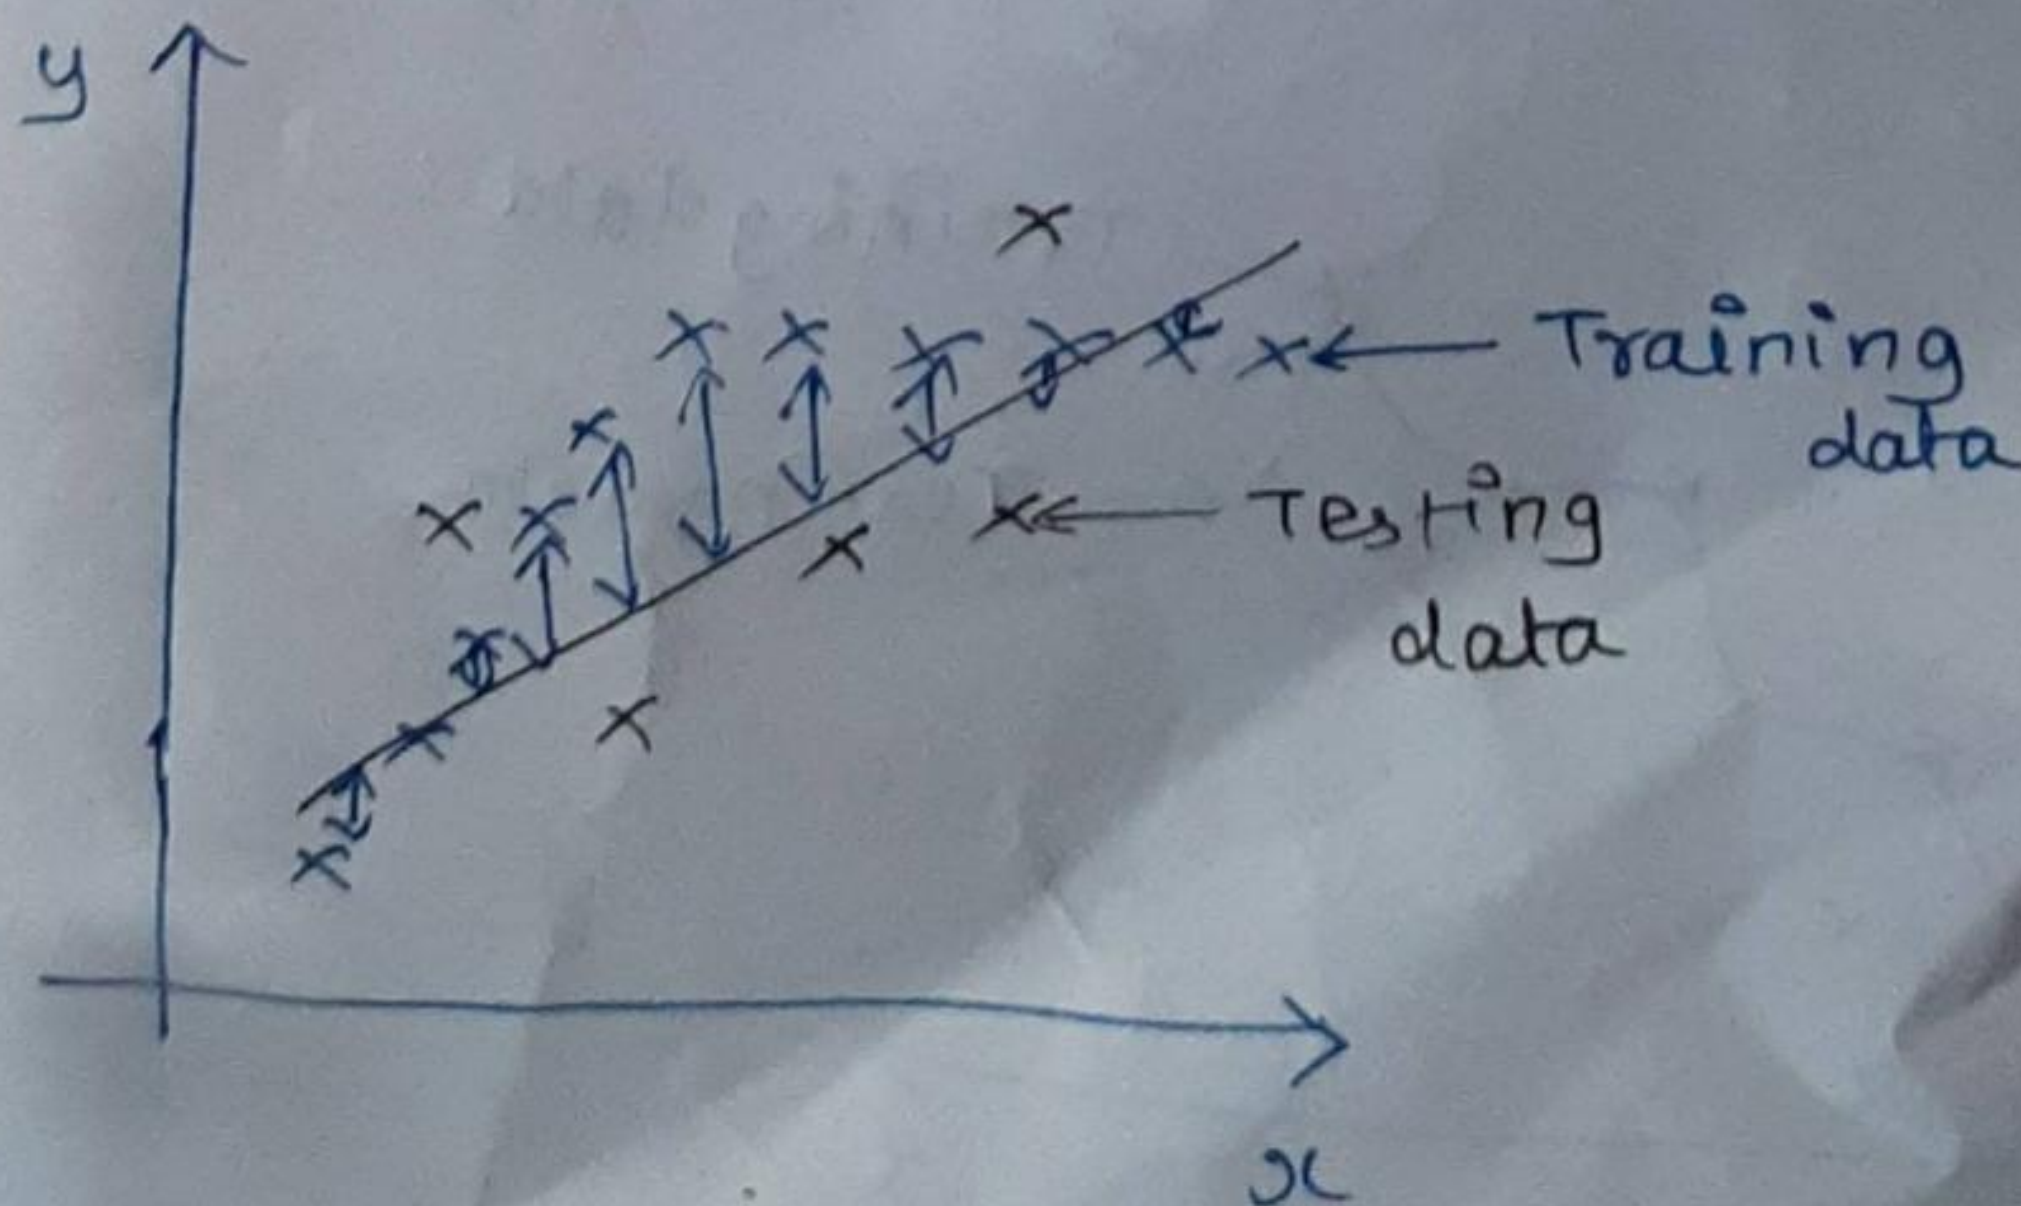 y
Training
data
Testing
data
x